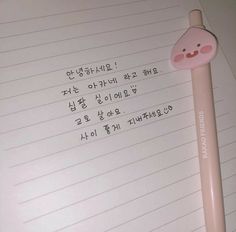 안녕하세요!
저는 아카네 라고 해요.
십팔 살이에요
교토 살아요.
사이 좋게 지내주세요
KAKAO FRIENDS